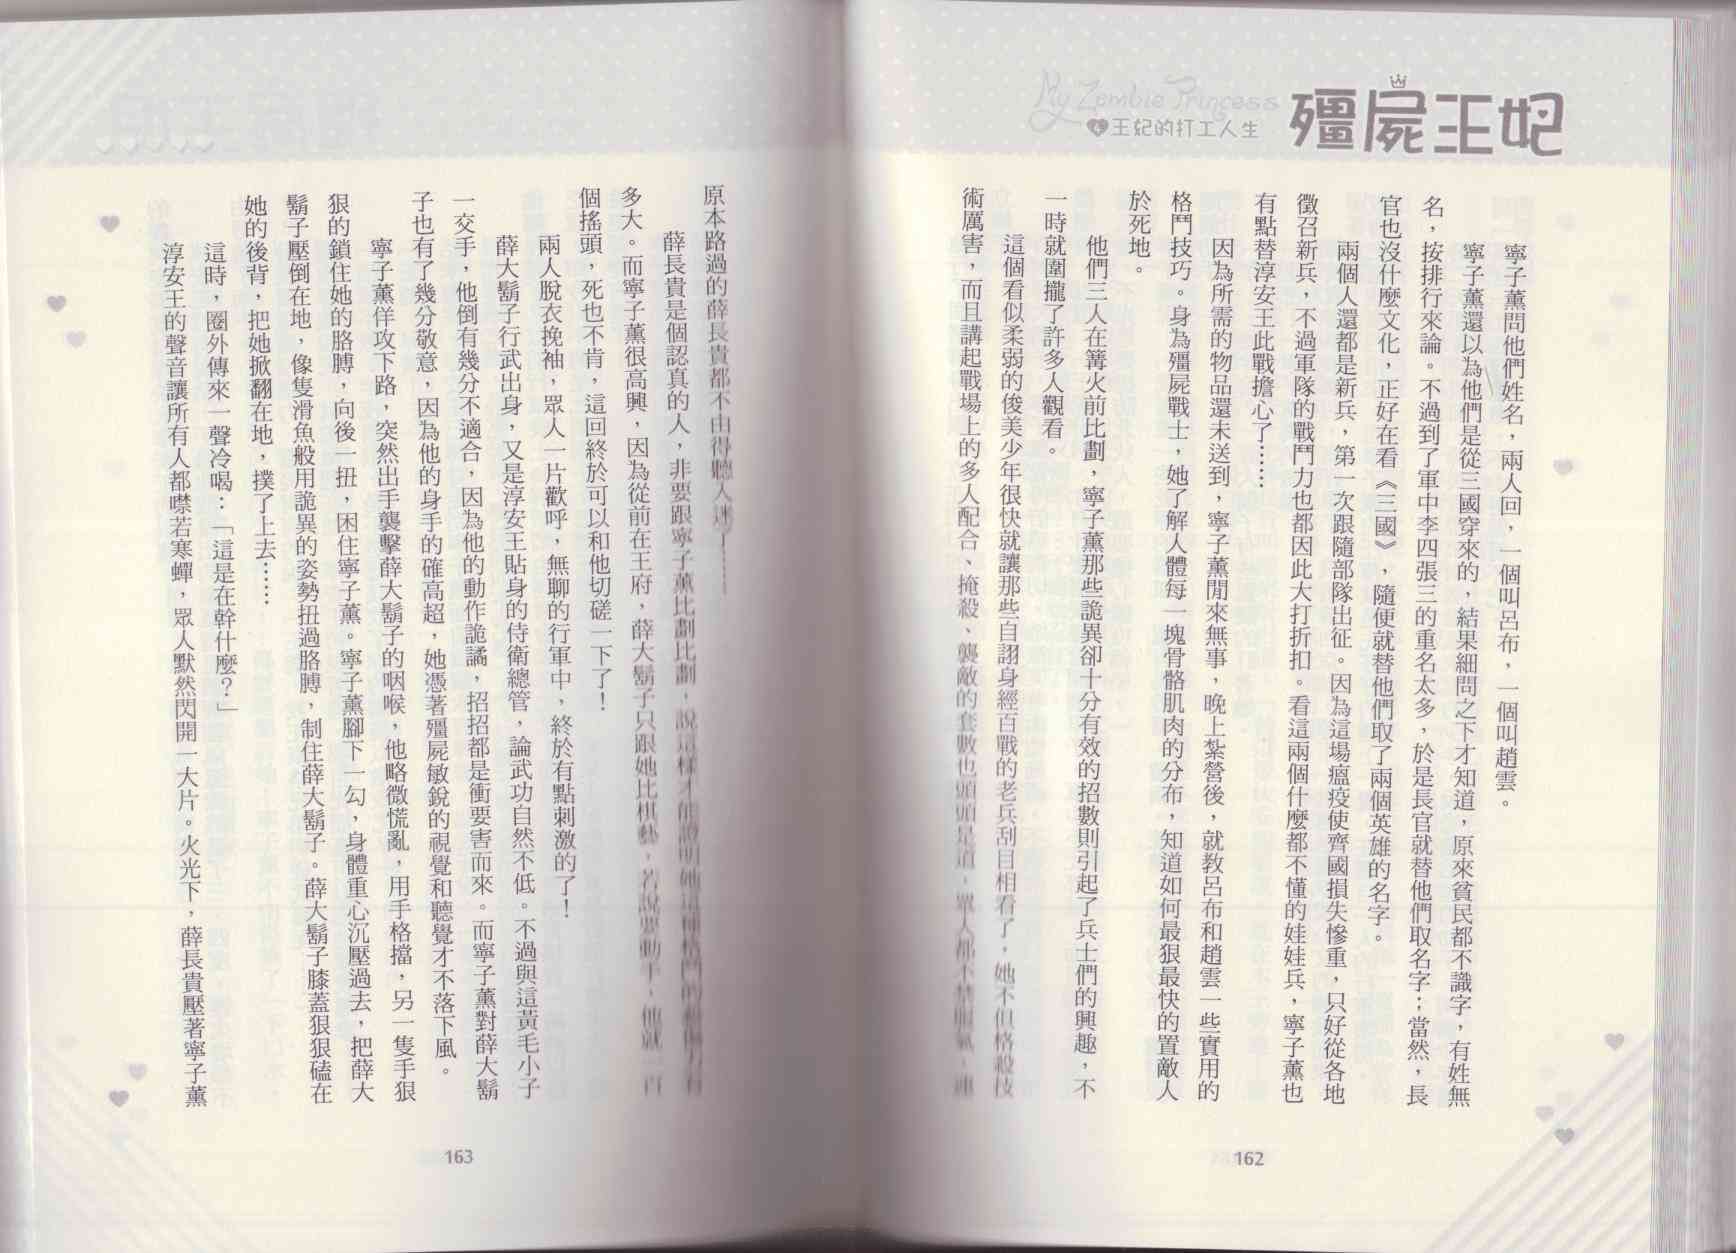 My Zombie Princess
殭屍王妃
王妃的打工人生
寧子薰問他們姓名，兩人回，一個叫呂布，一個叫趙雲。
寧子薰還以為他們是從三國穿來的，結果細問之下才知道，原來貧民都不識字，有姓無
名，按排行來論。不過到了軍中李四張三的重名太多，於是長官就替他們取名字；當然，長
官也沒什麼文化，正好在看《三國》，隨便就替他們取了兩個英雄的名字。
兩個人還都是新兵，第一次跟隨部隊出征。因為這場瘟疫使齊國損失慘重，只好從各地
徵召新兵，不過軍隊的戰鬥力也都因此大打折扣。看這兩個什麼都不懂的娃娃兵，寧子薰也
有點替淳安王此戰擔心了……
因為所需的物品還未送到，寧子薰閒來無事，晚上紮營後，就教呂布和趙雲一些實用的
格鬥技巧。身為殭屍戰士，她了解人體每一塊骨骼肌肉的分布，知道如何最狠最快的置敵人
於死地。
他們三人在篝火前比劃，寧子薰那些詭異卻十分有效的招數則引起了兵士們的興趣，不
一時就圍攏了許多人觀看。
這個看似柔弱的俊美少年很快就讓那些自詡身經百戰的老兵刮目相看了，她不但格殺技
術厲害，而且講起戰場上的多人配合、掩殺、襲敵的套數也頭頭是道，眾人都不禁服氣，連
162
原本路過的薛長貴都不由得聽入迷了……
薛長貴是個認真的人，非要跟寧子薰比劃比劃，說這樣才能證明她這種格鬥的殺傷力有
多大。而寧子薰很高興，因為從前在王府，薛大鬍子只跟她比棋藝，若說要動手，他就一百
個搖頭，死也不肯，這回終於可以和他切磋一下了！
兩人脫衣挽袖，眾人一片歡呼，無聊的行軍中，終於有點刺激的了！
薛大鬍子行武出身，又是淳安王貼身的侍衛總管，論武功自然不低。不過與這黃毛小子
一交手，他倒有幾分不適合，因為他的動作詭譎，招招都是衝要害而來。而寧子薰對薛大鬍
子也有了幾分敬意，因為他的身手的確高超，她憑著殭屍敏銳的視覺和聽覺才不落下風。
寧子薰佯攻下路，突然出手襲擊薛大鬍子的咽喉，他略微慌亂，用手格擋，另一隻手狠
狠的鎖住她的胳膊，向後一扭，困住寧子薰。寧子薰腳下一勾，身體重心沉壓過去，把薛大
鬍子壓倒在地，像隻滑魚般用詭異的姿勢扭過胳膊，制住薛大鬍子。薛大鬍子膝蓋狠狠磕在
她的後背，把她掀翻在地，撲了上去……
這時，圈外傳來一聲冷喝：「這是在幹什麼？」
淳安王的聲音讓所有人都噤若寒蟬，眾人默然閃開一大片。火光下，薛長貴壓著寧子薰
163